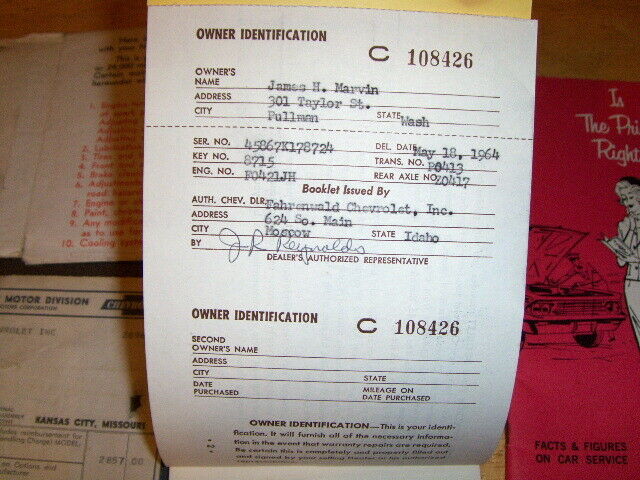 OWNER IDENTIFICATION
C 108426
OWNER'S NAME James H. Marvin
ADDRESS 301 Taylor St.
CITY Pullman STATE Wash
SER. NO. 45867K178724 DEL. DATE May 18, 1964
KEY NO. 8715 TRANS. NO. P0413
ENG. NO. F0421JH REAR AXLE NO. Z0417
Booklet Issued By
AUTH. CHEV. DLR. Fahrenwald Chevrolet, Inc.
ADDRESS 624 So. Main
CITY Moscow STATE Idaho
BY J R Reynolds
DEALER'S AUTHORIZED REPRESENTATIVE
OWNER IDENTIFICATION
C 108426
SECOND
OWNER'S NAME
ADDRESS
CITY STATE
DATE PURCHASED MILEAGE ON DATE PURCHASED
OWNER IDENTIFICATION—This is your identi-
fication. It will furnish all of the necessary informa-
tion in the event that warranty repairs are required.
Be certain this is completely and properly filled out
and signed by your selling dealer or his authorized
• 2 •
MOTOR DIVISION CHEVROLET
MOTORS CORPORATION
CHEVROLET INC
KANSAS CITY, MISSOURI
includes reimbursement for
Handling Charge) MODEL
2857.00
Options and
10. Cooling
Is
The Pri
Right
FACTS & FIGURES
ON CAR SERVICE